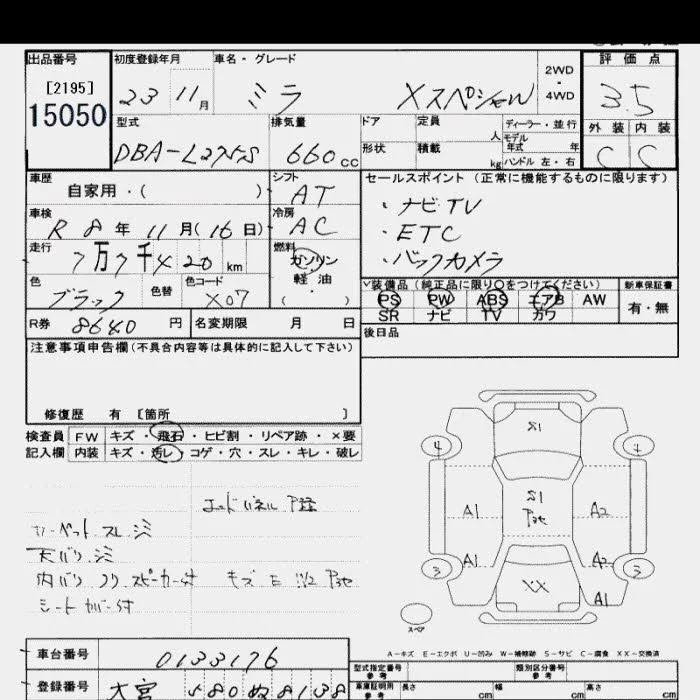 出品番号 初度登録年月 車名・グレード 評価点
[2195]
15050
23 11月 ミラ Xスペシャル 2WD・4WD 3.5
型式 排気量 ドア 定員 人 ディーラー・並行 外装 内装
モデル年式 年
DBA-L275S 660cc 形状 積載 kg ハンドル 左・右 C C
車歴 シフト セールスポイント(正常に機能するものに限ります)
自家用・( ) AT ・ナビTV
車検 冷房 ・ETC
R8年11月(16日) AC ・バックカメラ
走行 燃料
7万7千420km ガソリン
軽油
( )
色 色替 色コード
ブラック X07
装備品(純正品に限り○をつけてください) 新車保証書
PS PW ABS エアB AW 有・無
SR ナビ TV カワ
R券 8640円 名変期限 月 日 後日品
注意事項申告欄(不具合内容等は具体的に記入して下さい)
修復歴 有 [箇所 ]
検査員 FW キズ・飛石・ヒビ割・リペア跡・×要
記入欄 内装 キズ・汚レ・コゲ・穴・スレ・キレ・破レ
カーペットスレ シミ
天バリ シミ
シートカバー付
S1
4 4
S1
A1 A2
A1 A2
3 3
XX
A1
スペア
A-キズ E-エクボ U-凹み W-補修跡 S-サビ C-腐食 XX-交換済
車台番号 0133176
登録番号 大宮 580 ぬ 8138
型式指定番号 参考 類別区分番号 参考
車庫証明用 参考 長さ cm 幅 cm 高さ cm